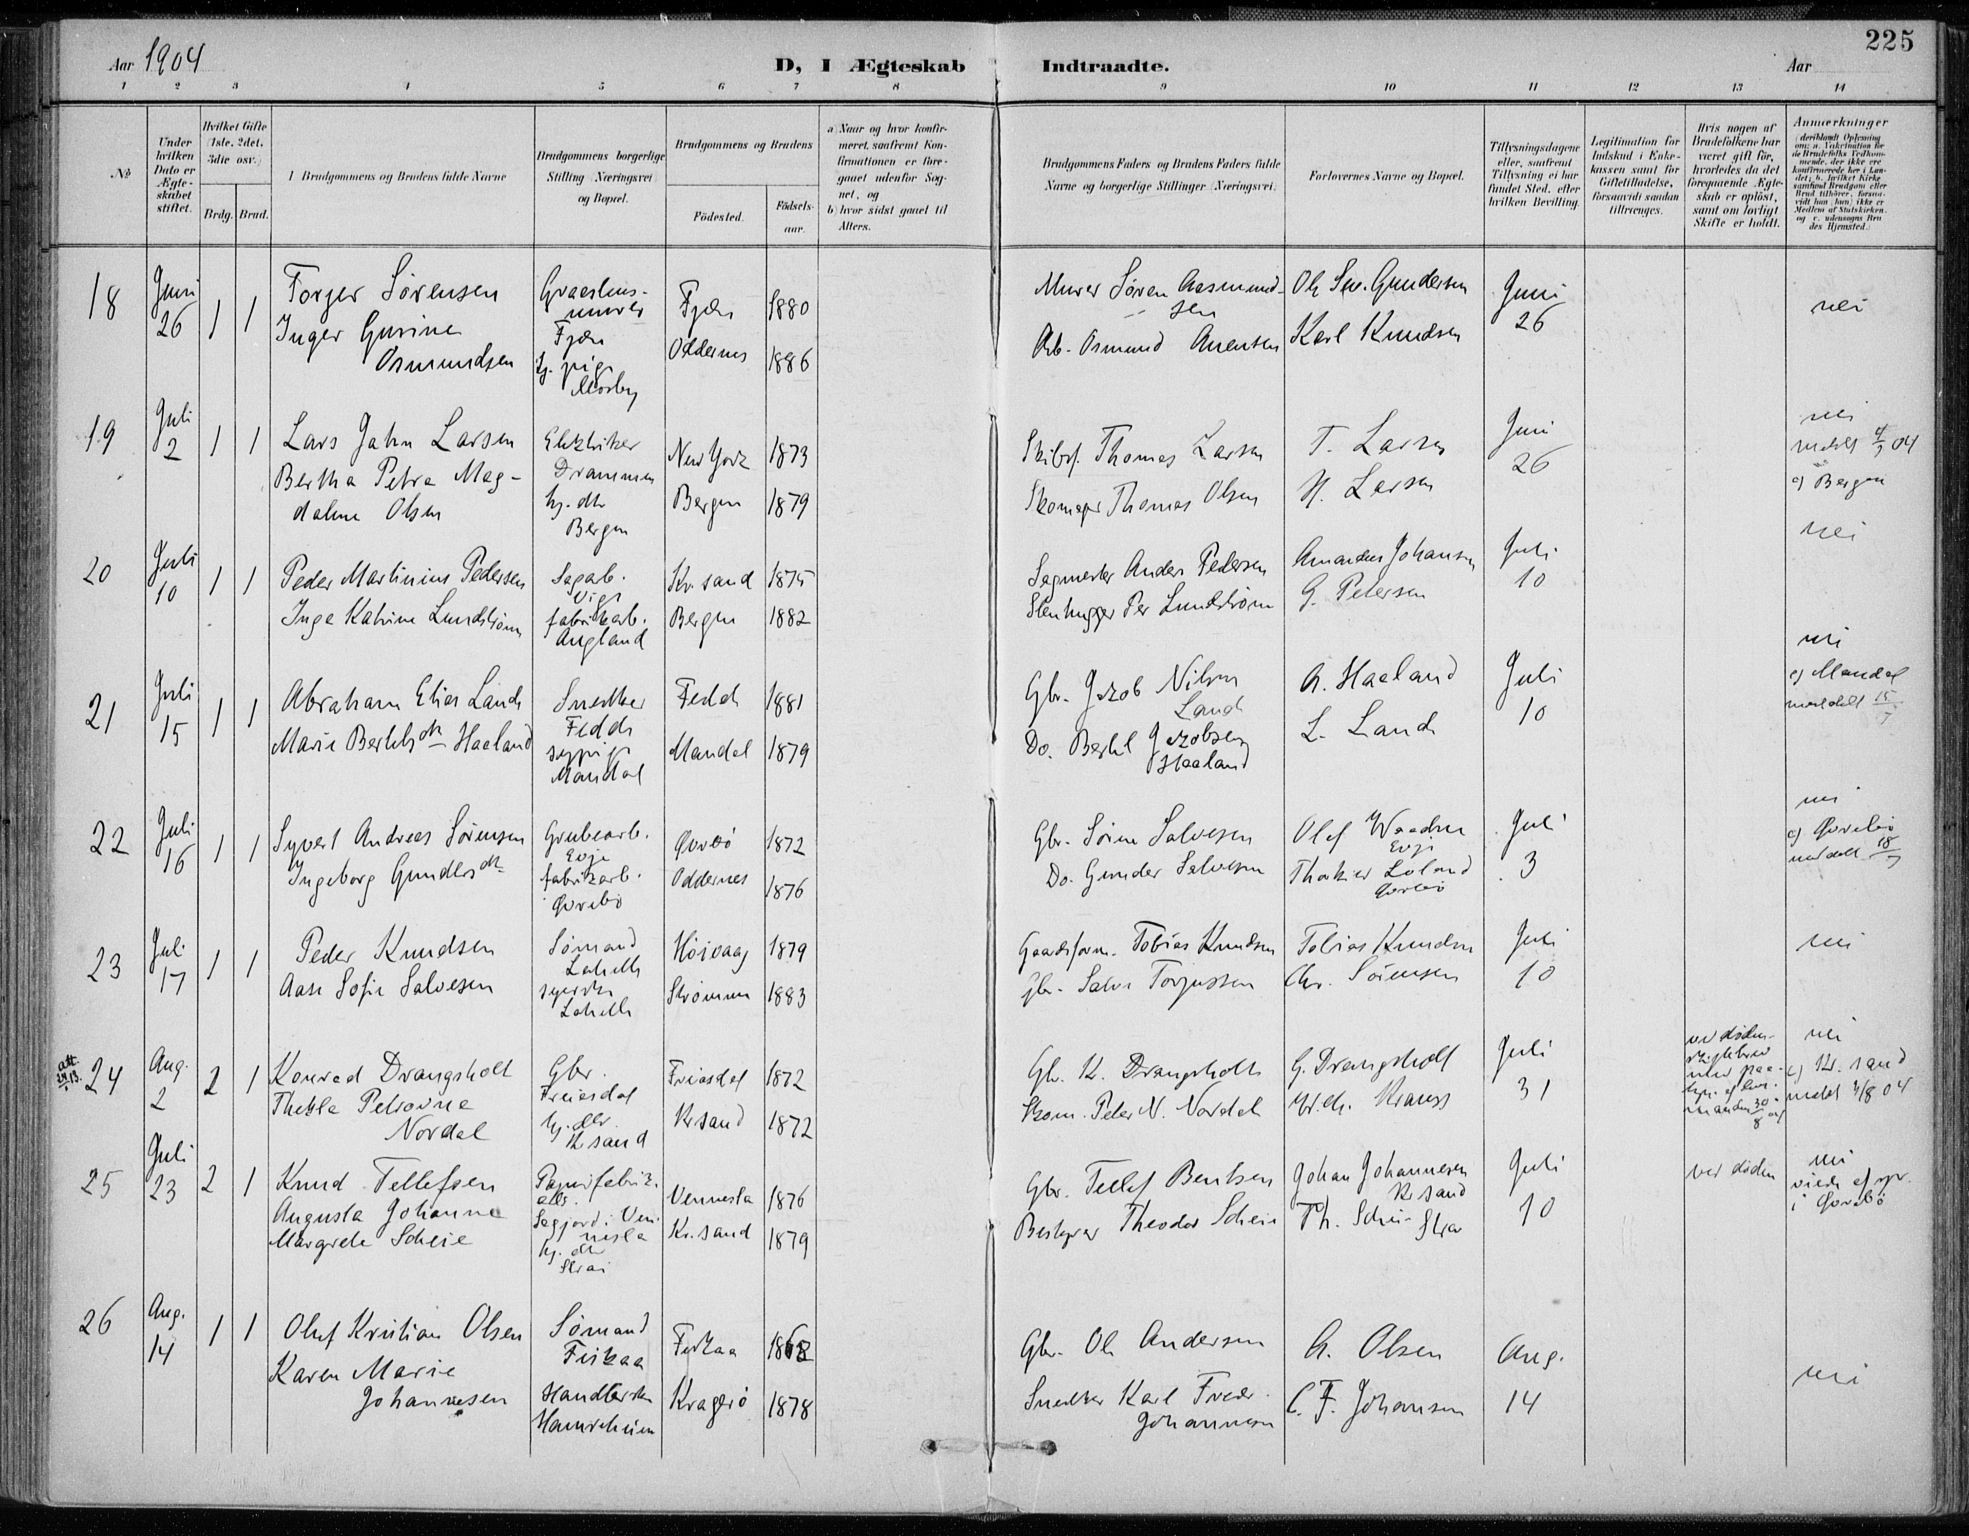 225
Aar 1904
D, I Ægteskab Indtraadte.
Aar
1 2 3 4 5 6 7 8 9 10 11 12 13 14
№
Under hvilken Dato er Ægteskabet stiftet.
Hvilket Gifte (1ste, 2det, 3die osv.)
Brdg. Brud.
I Brudgommens og Brudens fulde Navne
Brudgommens borgerlige Stilling (Næringsvei) og Bopæl.
Brudgommens og Brudens
Födested.
Födselsaar.
a) Naar og hvor konfirmeret, saafremt Konfirmationen er foregaaet udenfor Sognet, og
b) hvor sidst gaaet til Alters.
Brudgommens Faders og Brudens Faders fulde Navne og borgerlige Stillinger (Næringsvei).
Forlovernes Navne og Bopæl.
Tillysningsdagene eller, saafremt Tillysning ei har fundet Sted, efter hvilken Bevilling.
Legitimation for Indskud i Enkekassen samt for Giftetilladelse, forsaavidt saadan tiltrænges.
Hvis nogen af Brudefolkene har været gift før, hvorledes da det foregaaende Ægteskab er oplöst, samt om lovligt Skifte er holdt.
Anmærkninger
18 Juni 26 1 1
Torger Sørensen
Inger Gurine
Osmundsen
murer
Fjære 1880
Oddernes 1886
Mosby
Murer Søren Aasmundsen
Arb. Osmund Anensen
Gundersen
Karl Knudsen
Juni 26
nei
19 Juli 2 1 1
Lars John Larsen
Bertha Petra Magdalene Olsen
Drammen
Bergen
New York 1873
Bergen 1879
Thomas Larsen
Thomas Olsen
T. Larsen
H. Larsen
Juni 26
nei
c) Bergen
20 Juli 10 1 1
Peder Martinius Pedersen
Inga Katrine Lundstrøm
Sagarb.
fabrikarb.
Augland
Kr.sand 1875
Bergen 1882
Sagmester Anders Pedersen
Stenhugger Per Lundstrøm
Amandus Johansen
G. Petersen
Juli 10
nei
21 Juli 15 1 1
Abraham Elias Lande
Marie Bertelsdtr Haaland
Snedker
Fedde
sypige
Mandal
Fedde 1881
Mandal 1879
Gbr. Jakob Nilsen
Lande
Do. Bertel Jakobsen
Haaland
A. Haaland
L. Lande
Juli 10
nei
c) Mandal
meddelt 15/7
22 Juli 16 1 1
Syvert Andreas Sørensen
Ingeborg Gundersdtr
Grubearb.
Evje
fabrikarb.
Øvrebø
Øvrebø 1872
Oddernes 1876
Gbr. Søren Salvesen
Do. Gunder Salvesen
Evje
Øvrebø
Juli 3
nei
c) Øvrebø
meddelt 18/7
23 Juli 17 1 1
Peder Knudsen
Aase Sofie Salvesen
Sømand
Lahelle
syerske
Lahelle
Høivaag 1879
Strømme 1883
Gaardsform. Tobias Knudsen
Gbr. Salve Torjussen
Tobias Knudsen
Chr. Sørensen
Juli 10
nei
24 Aug. 2 2 1
Konrad Drangsholt
Thekla Petrovne
Nordal
Gbr.
Friesdal
hj. dtr.
Kr.sand
Frisdal 1872
Kr.sand 1872
Gbr. K. Drangsholt
Skom. Peter N. Nordal
G. Drangsholt
Krauss
Juli 31
ved døden
nei
c) Kr.sand
meldt 4/8 04
25 Juli 23 2 1
Knud Tellefsen
Augusta Johanne
Margrete Scheie
Papirfabrik
Vennesla
hj. dtr
Strai
Vennesla 1876
Kr.sand 1879
Gbr. Tellef Bentsen
Bestyrer Theodor Scheie
Johan Johannesen
Kr.sand
Th. Scheie Strai
Juli 10
ved døden
nei
viede af spr.
i Øvrebø
26 Aug. 14 1 1
Oluf Kristian Olsen
Karen Marie
Johannesen
Sømand
Fiskaa
Handlerske
Fiskaa
Kragerø 1878
Gbr. Ole Andersen
Snedker Karl Fredr.
Johannesen
A. Olsen
C. F. Johansen
Aug. 14
nei